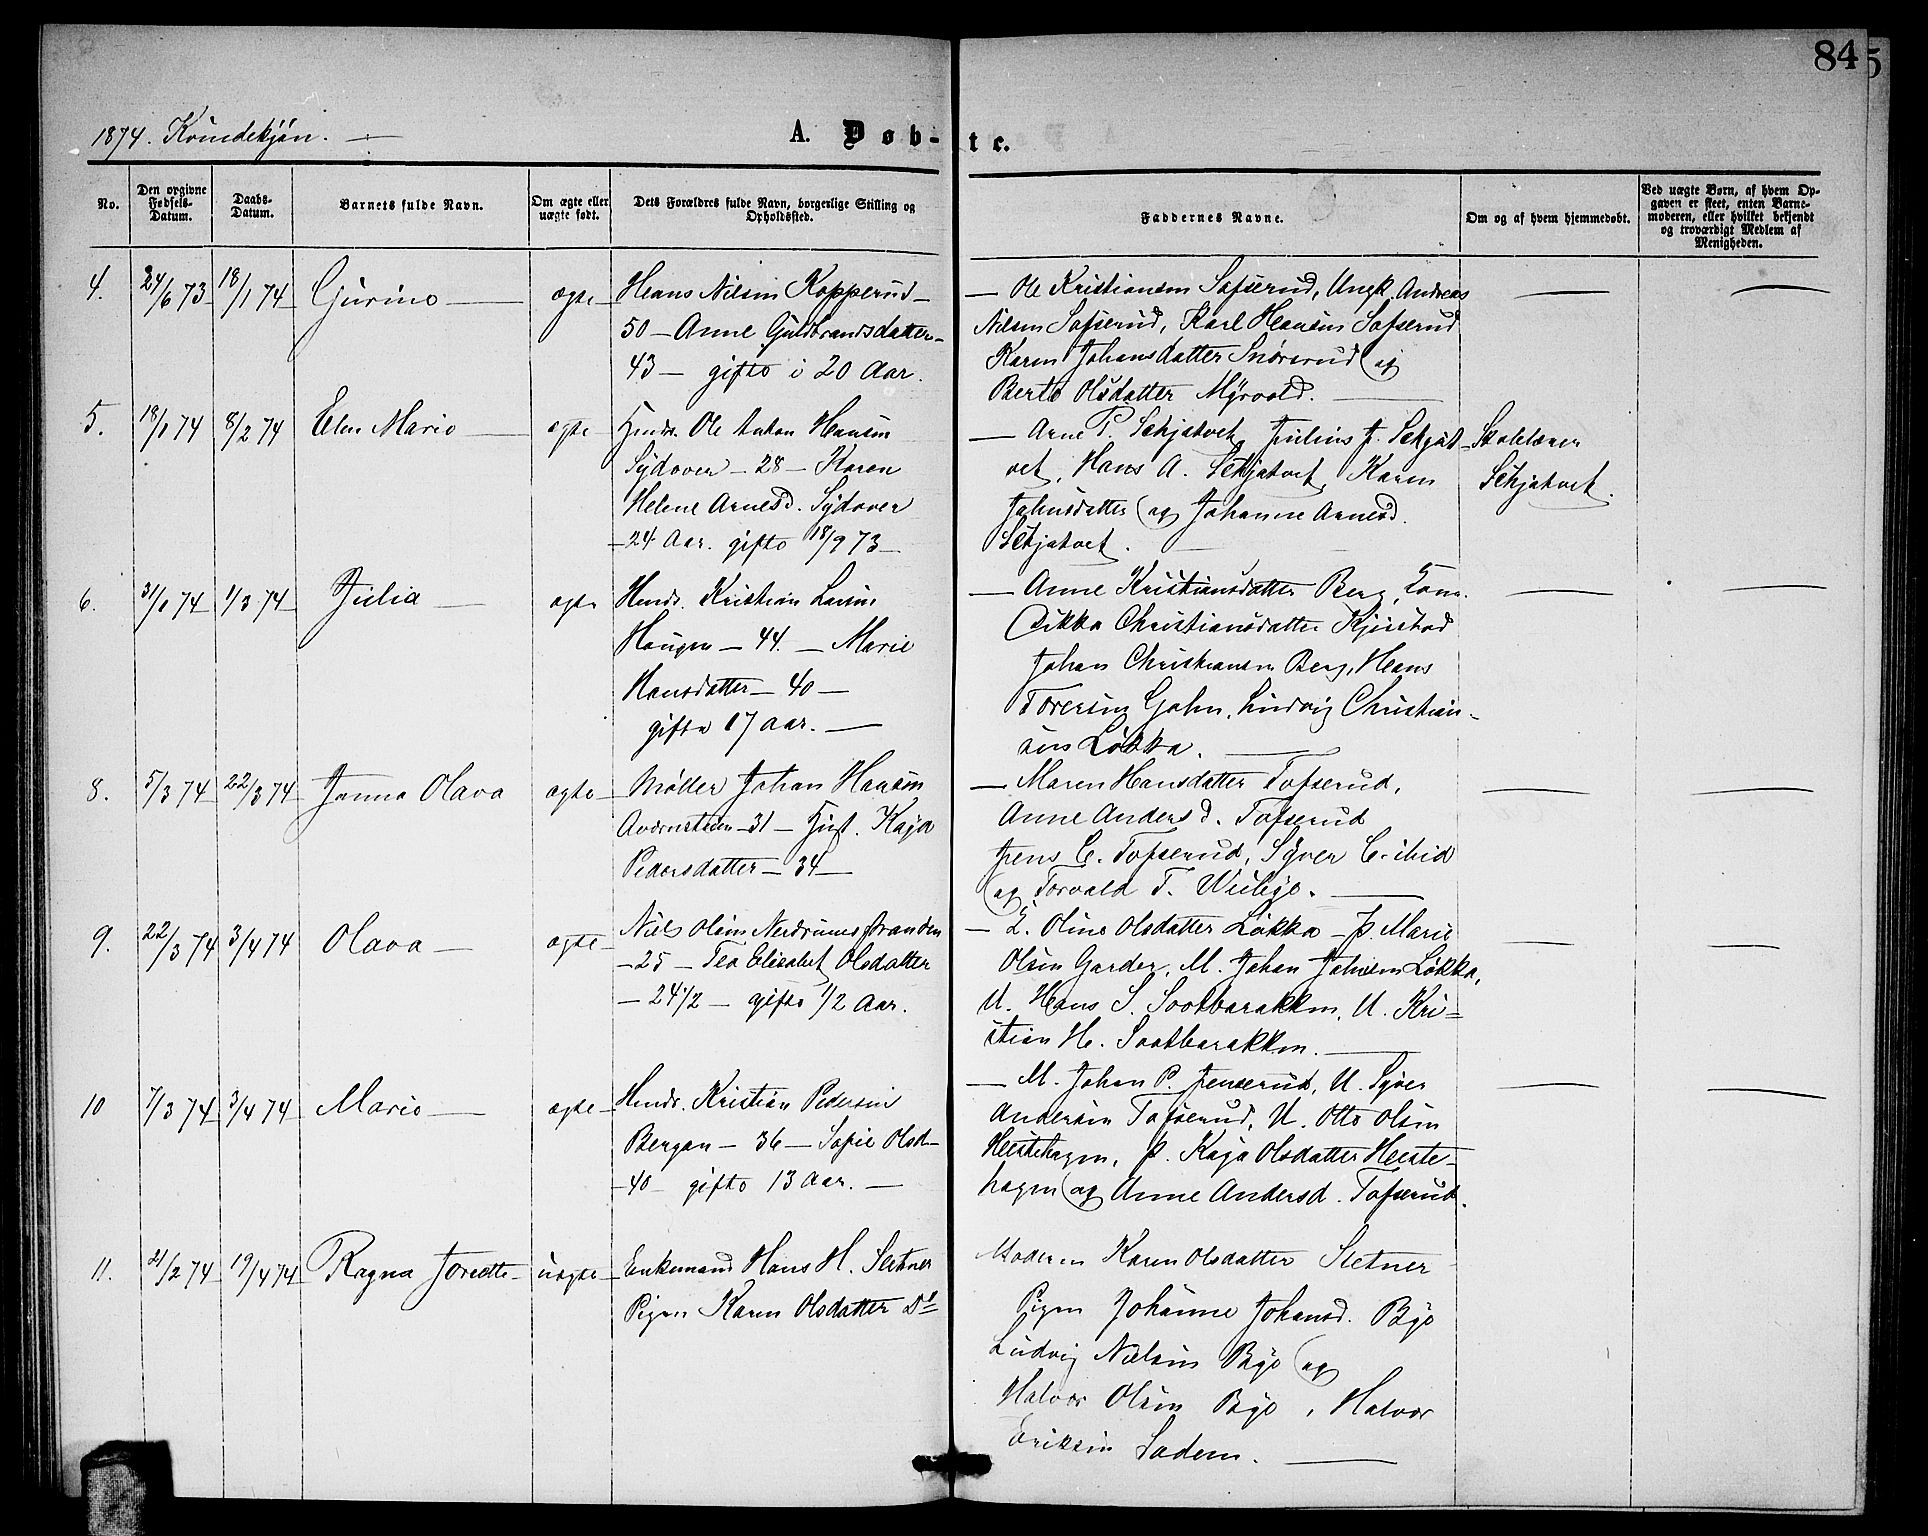 84
5
1874. Kvindekjøn.
A. Døb-te.
No.
Den opgivne Fødsels-Datum.
Daabs-Datum.
Barnets fulde Navn.
Om ægte eller uægte født.
Dets Forældres fulde Navn, borgerlige Stilling og Opholdssted.
Faddernes Navne.
Om og af hvem hjemmedøbt.
Ved uægte Børn, af hvem Opgaven er skeet, enten Barnemoderen, eller hvilket bekjendt og troværdigt Medlem af Menigheden.
4. 24/6 73 18/1 74 Gurine ægte
Hans Nilsen Kopperud
50 - Anne Guldbrandsdatter
43 - gifte i 20 Aar.
Ole Kristiansen Tofserud, Ungk. Andreas
Nilsen Tofserud, Karl Hansen Tofserud
Karen Johansdatter Snørerud og
Berte Olsdatter Myrvold.
5. 18/1 74 8/2 74 Elen Marie ægte
Ole Anton Hansen
Sydover - 28 - Karen
Helene Arnesd. Sydover
24 Aar. gifte 18/9 73
Arne P. Sekjatvet, Julius J. Sekjat-
vet, Hans A. Sekjatvet, Karen
Jahnsdatter og Johanne Arnesd.
Sekjatvet.
Skolelærer
Sekjatvet.
6. 31/1 74 1/3 74 Julia ægte
Husm. Kristian Larsen
Haugen - 44. - Marie
Hansdatter - 40 -
gifte 17 Aar.
Anne Kristiansdatter Berg, Kone
Rikka Christiansdatter Kjirstad
Johan Christiansen Berg, Hans
Toresen Gahn, Ludvig Christian-
sen Løkka.
8. 5/3 74 22/3 74 Janna Olava ægte
Møller Johan Hansen
31 - Hust. Kaja
Pedersdatter - 34 -
Maren Hansdatter Tofserud,
Anne Andersd. Tofserud
Jens C. Tofserud, Syver
og Torvald T. Wiibye.
9. 22/3 74 3/4 74 Olava ægte
Niels Olsen Nerdrumsstranden
- 25 - Tea Elisabet Olsdatter
- 24 1/2 - gifte 1/2 Aar.
E. Oline Olsdatter Løkka - P. Marie
Olsen Garder, M. Johan Johnsen Løkka,
U. Hans S. Sootbarakken, U. Kri-
stian H. Sootbarakken.
10 7/3 74 3/4 74 Marie ægte
Husm. Kristian Pedersen
Bergan - 36 - Sofie Olsd.
- 40 - gifte 13 Aar.
M. Johan P. Jenserud, U. Syver
Andersen Tofserud, U. Otto Olsen
Heistehagen, P. Kaja Olsdatter Heiste-
hagen og Anne Andersd. Tofserud.
11. 21/2 74 19/4 74 Ragna uægte
Enkemand Hans H. Stetner
Pigen Karen Olsdatter Do
Moderen Karen Olsdatter Stetner
Pigen Johanne Johansd. Bye
Ludvig Nielsen Bye og
Halvor Olsen Bye, Halvor
Eriksen Sodem.